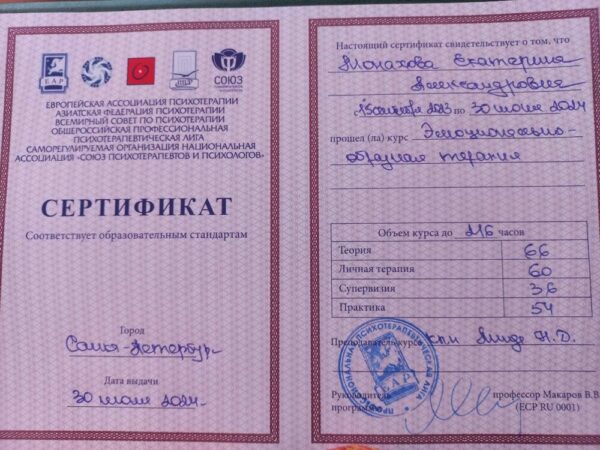 ЕАР
СОЮЗ
ЕВРОПЕЙСКАЯ АССОЦИАЦИЯ ПСИХОТЕРАПИИ
АЗИАТСКАЯ ФЕДЕРАЦИЯ ПСИХОТЕРАПИИ
ВСЕМИРНЫЙ СОВЕТ ПО ПСИХОТЕРАПИИ
ОБЩЕРОССИЙСКАЯ ПРОФЕССИОНАЛЬНАЯ
ПСИХОТЕРАПЕВТИЧЕСКАЯ ЛИГА
САМОРЕГУЛИРУЕМАЯ ОРГАНИЗАЦИЯ НАЦИОНАЛЬНАЯ
АССОЦИАЦИЯ «СОЮЗ ПСИХОТЕРАПЕВТОВ И ПСИХОЛОГОВ»
СЕРТИФИКАТ
Соответствует образовательным стандартам
Город
Санкт-Петербург
Дата выдачи
30 июля 2024
Настоящий сертификат свидетельствует о том, что
Монахова Екатерина
Александровна
с 15 сентября 2023 по 30 июля 2024
прошел (ла) курс Эмоционально-
образная терапия
Объем курса до 216 часов
Теория 66
Личная терапия 60
Супервизия 36
Практика 54
Преподаватель курса Линде Н.Д.
Руководитель
программы
профессор Макаров В.В.
(ECP RU 0001)
ПСИХОТЕРАПЕВТИЧЕСКАЯ ЛИГА
ЕАР